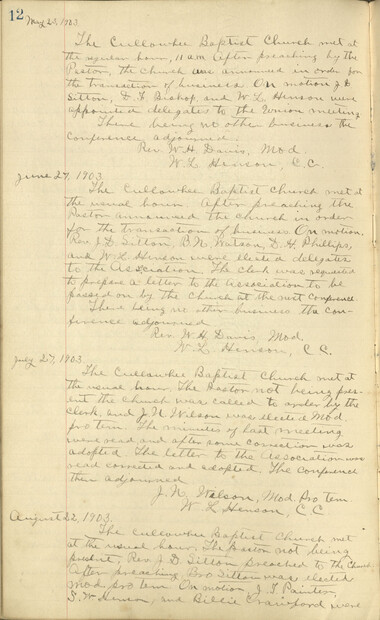 12
May 23, 1903.
The Cullowhee Baptist Church met at
the regular hour, 11 a.m. After preaching by the
Pastor, the church was announced in order for
the transaction of business. On motion J.D.
Sitton, D. F. Bishop, and W. L. Henson were
appointed delegates to the Union meeting.
There being no other business the
Conference adjourned.
Rev. W. H. Davis, Mod.
W. L. Henson, C. C.
June 27, 1903.
The Cullowhee Baptist Church met at
the usual hour. After preaching the
Pastor announced the church in order
for the transaction of business. On motion,
Rev. J. D. Sitton, B. N. Watson, D. H. Phillips,
and W. L. Henson were elected delegates
to the Association. The clerk was requested
to prepare a letter to the Association to be
passed on by the church at the next Conference
There being no other business the con-
ference adjourned.
Rev. W. H. Davis, Mod.
W. L. Henson, C. C.
July 27, 1903.
The Cullowhee Baptist Church met at
the usual hour. The Pastor not being pres-
ent the church was called to order by the
clerk, and J. N. Wilson was elected Mod.
pro tem. The minutes of last meeting
were read and after some correction was
adopted. The letter to the Association was
read corrected and adopted. The Conference
then adjourned.
J. N. Wilson, Mod Pro tem.
W. L. Henson, C. C.
August 22, 1903.
The Cullowhee Baptist Church met
at the usual hour. The pastor not being
present, Rev. J. D. Sitton preached to the Church
After preaching Bro Sitton was elected
Mod pro tem. On motion, J. T. Painter,
S. W. Henson, and Billie Crawford were